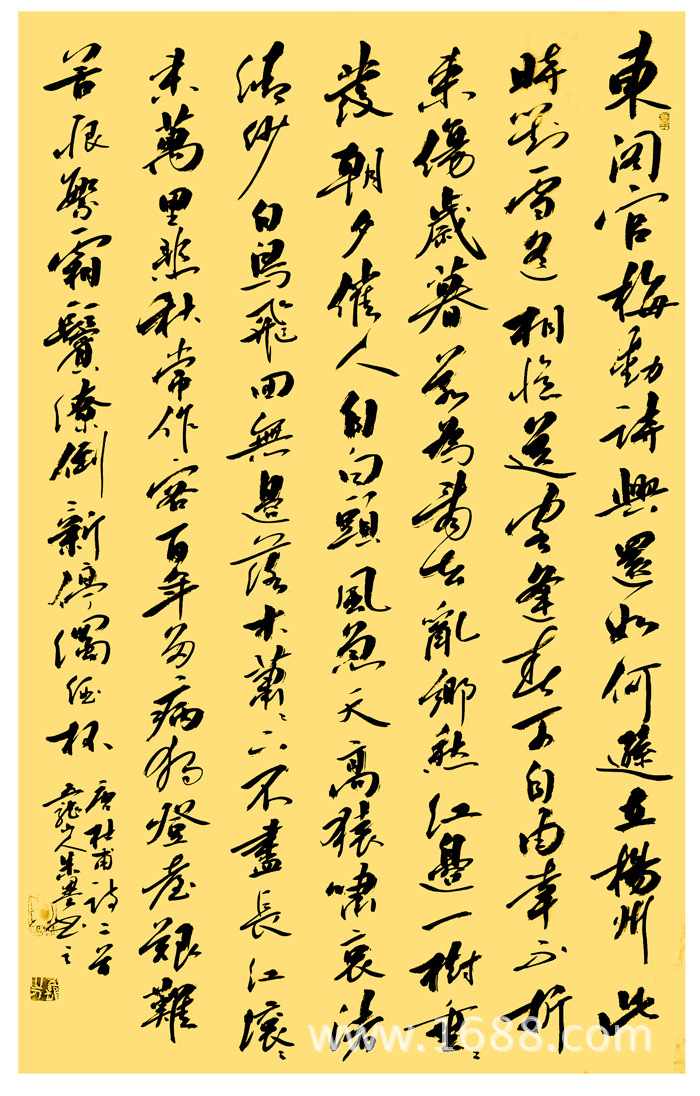 東阁官梅動詩興還如何遜在楊州此
時對雪遥相憶送客逢春可自由幸不折
來傷歲暮若為看去亂鄉愁江邊一樹垂〻
發朝夕催人自白頭風急天高猿嘯哀渚
清沙白鳥飛回無邊落木蕭〻下不盡長江滚〻
来萬里悲秋常作客百年多病獨登臺艱難
苦恨繁霜鬢潦倒新停濁酒杯
唐杜甫诗二首
五龍山人朱書之
www.1688.com